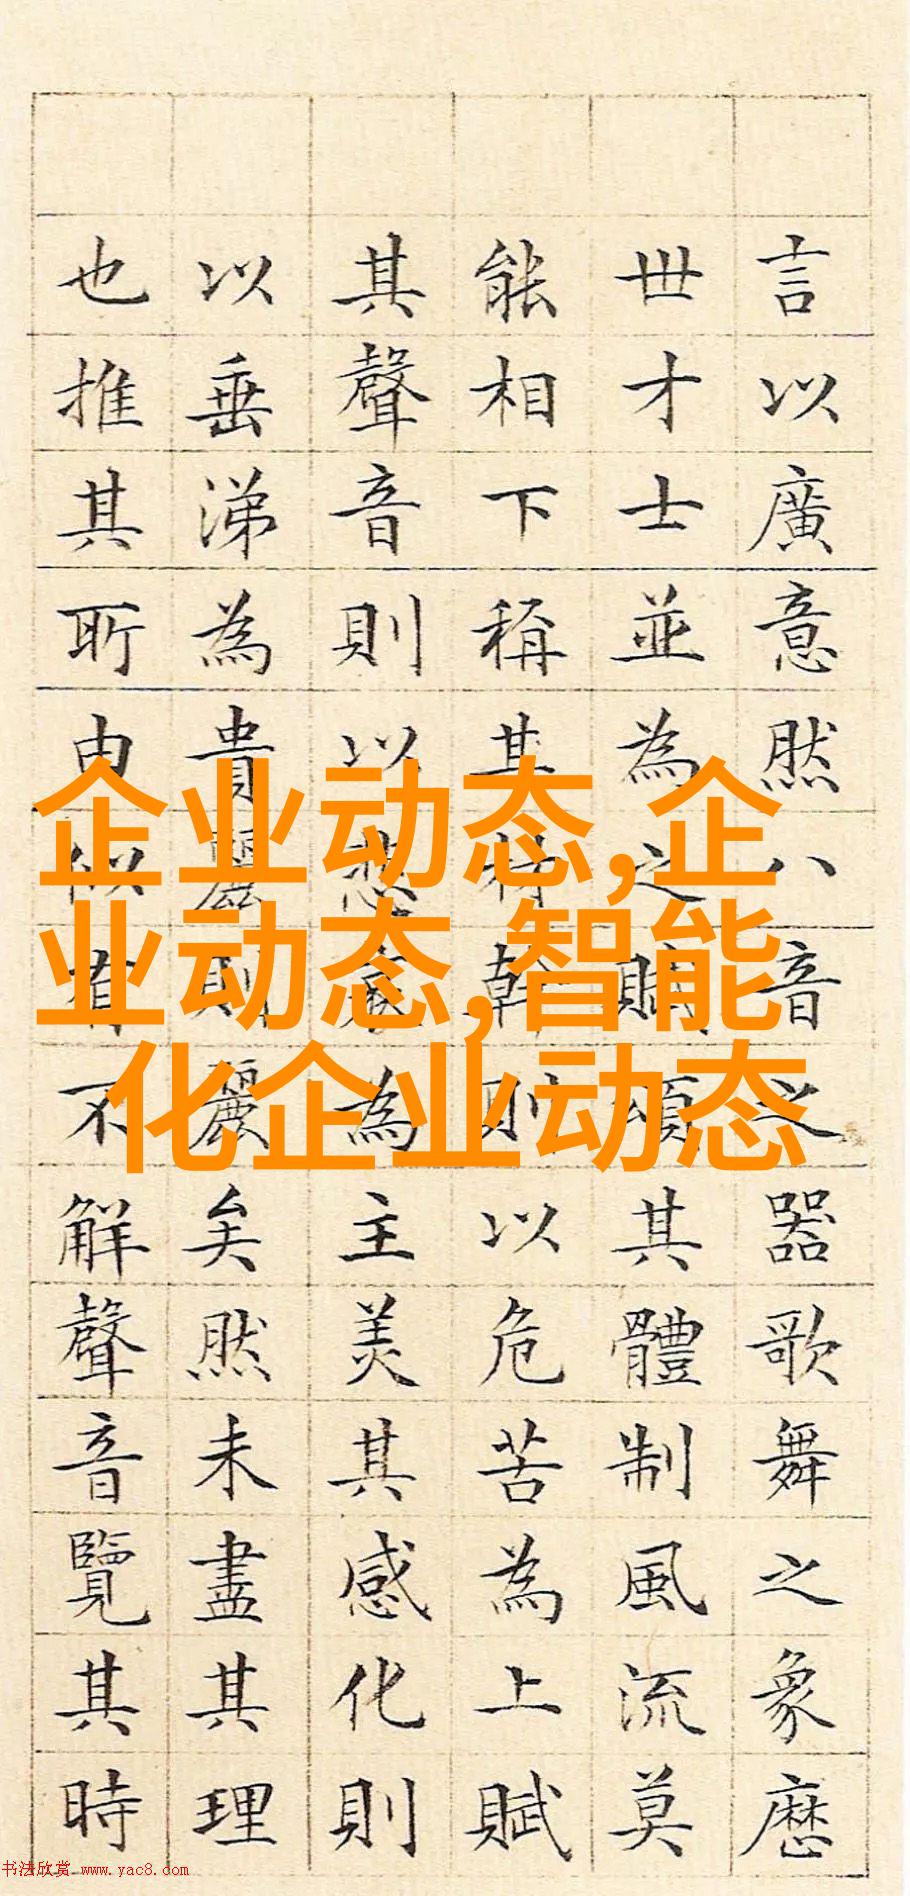 言以廣意然八音之器歌舞之象歷
世才士並為之賦頌其體制風流莫
能相下稱其材幹則以危苦為上賦
其聲音則以悲哀為主美其感化則
以垂涕為貴麗則麗矣然未盡其理
也推其所由似不解聲音覽其時
企业动态,企
业动态,智能
化企业动态
书法欣赏 www.yac8.com